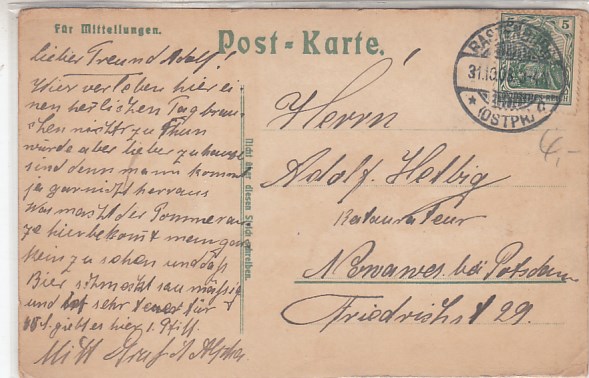 Für Mitteilungen.
Post-Karte.
lieber Freund Adolf!
Wier verleben hier ei
nen herlichen Tag brau
chen nicht zu Thun
würde aber lieber zu hause
sind denn mann kommt
ja garnicht heraus
Was macht der Pommeran
ze hier bekomt men gar
kein zu sehen und daß
Bier schmeckt so mässig
und ist sehr teuer für
10 d. giebt es hier 1. Pfiff.
Mitt Gruß
Nicht über diesen Strich schreiben.
Herrn
Adolf. Helbig
Restaurateur
Nowawes. bei Potsdam
Friedrichst 29.
5
RASTENBURG
31.10.08.
* (OSTPR) c
4,-